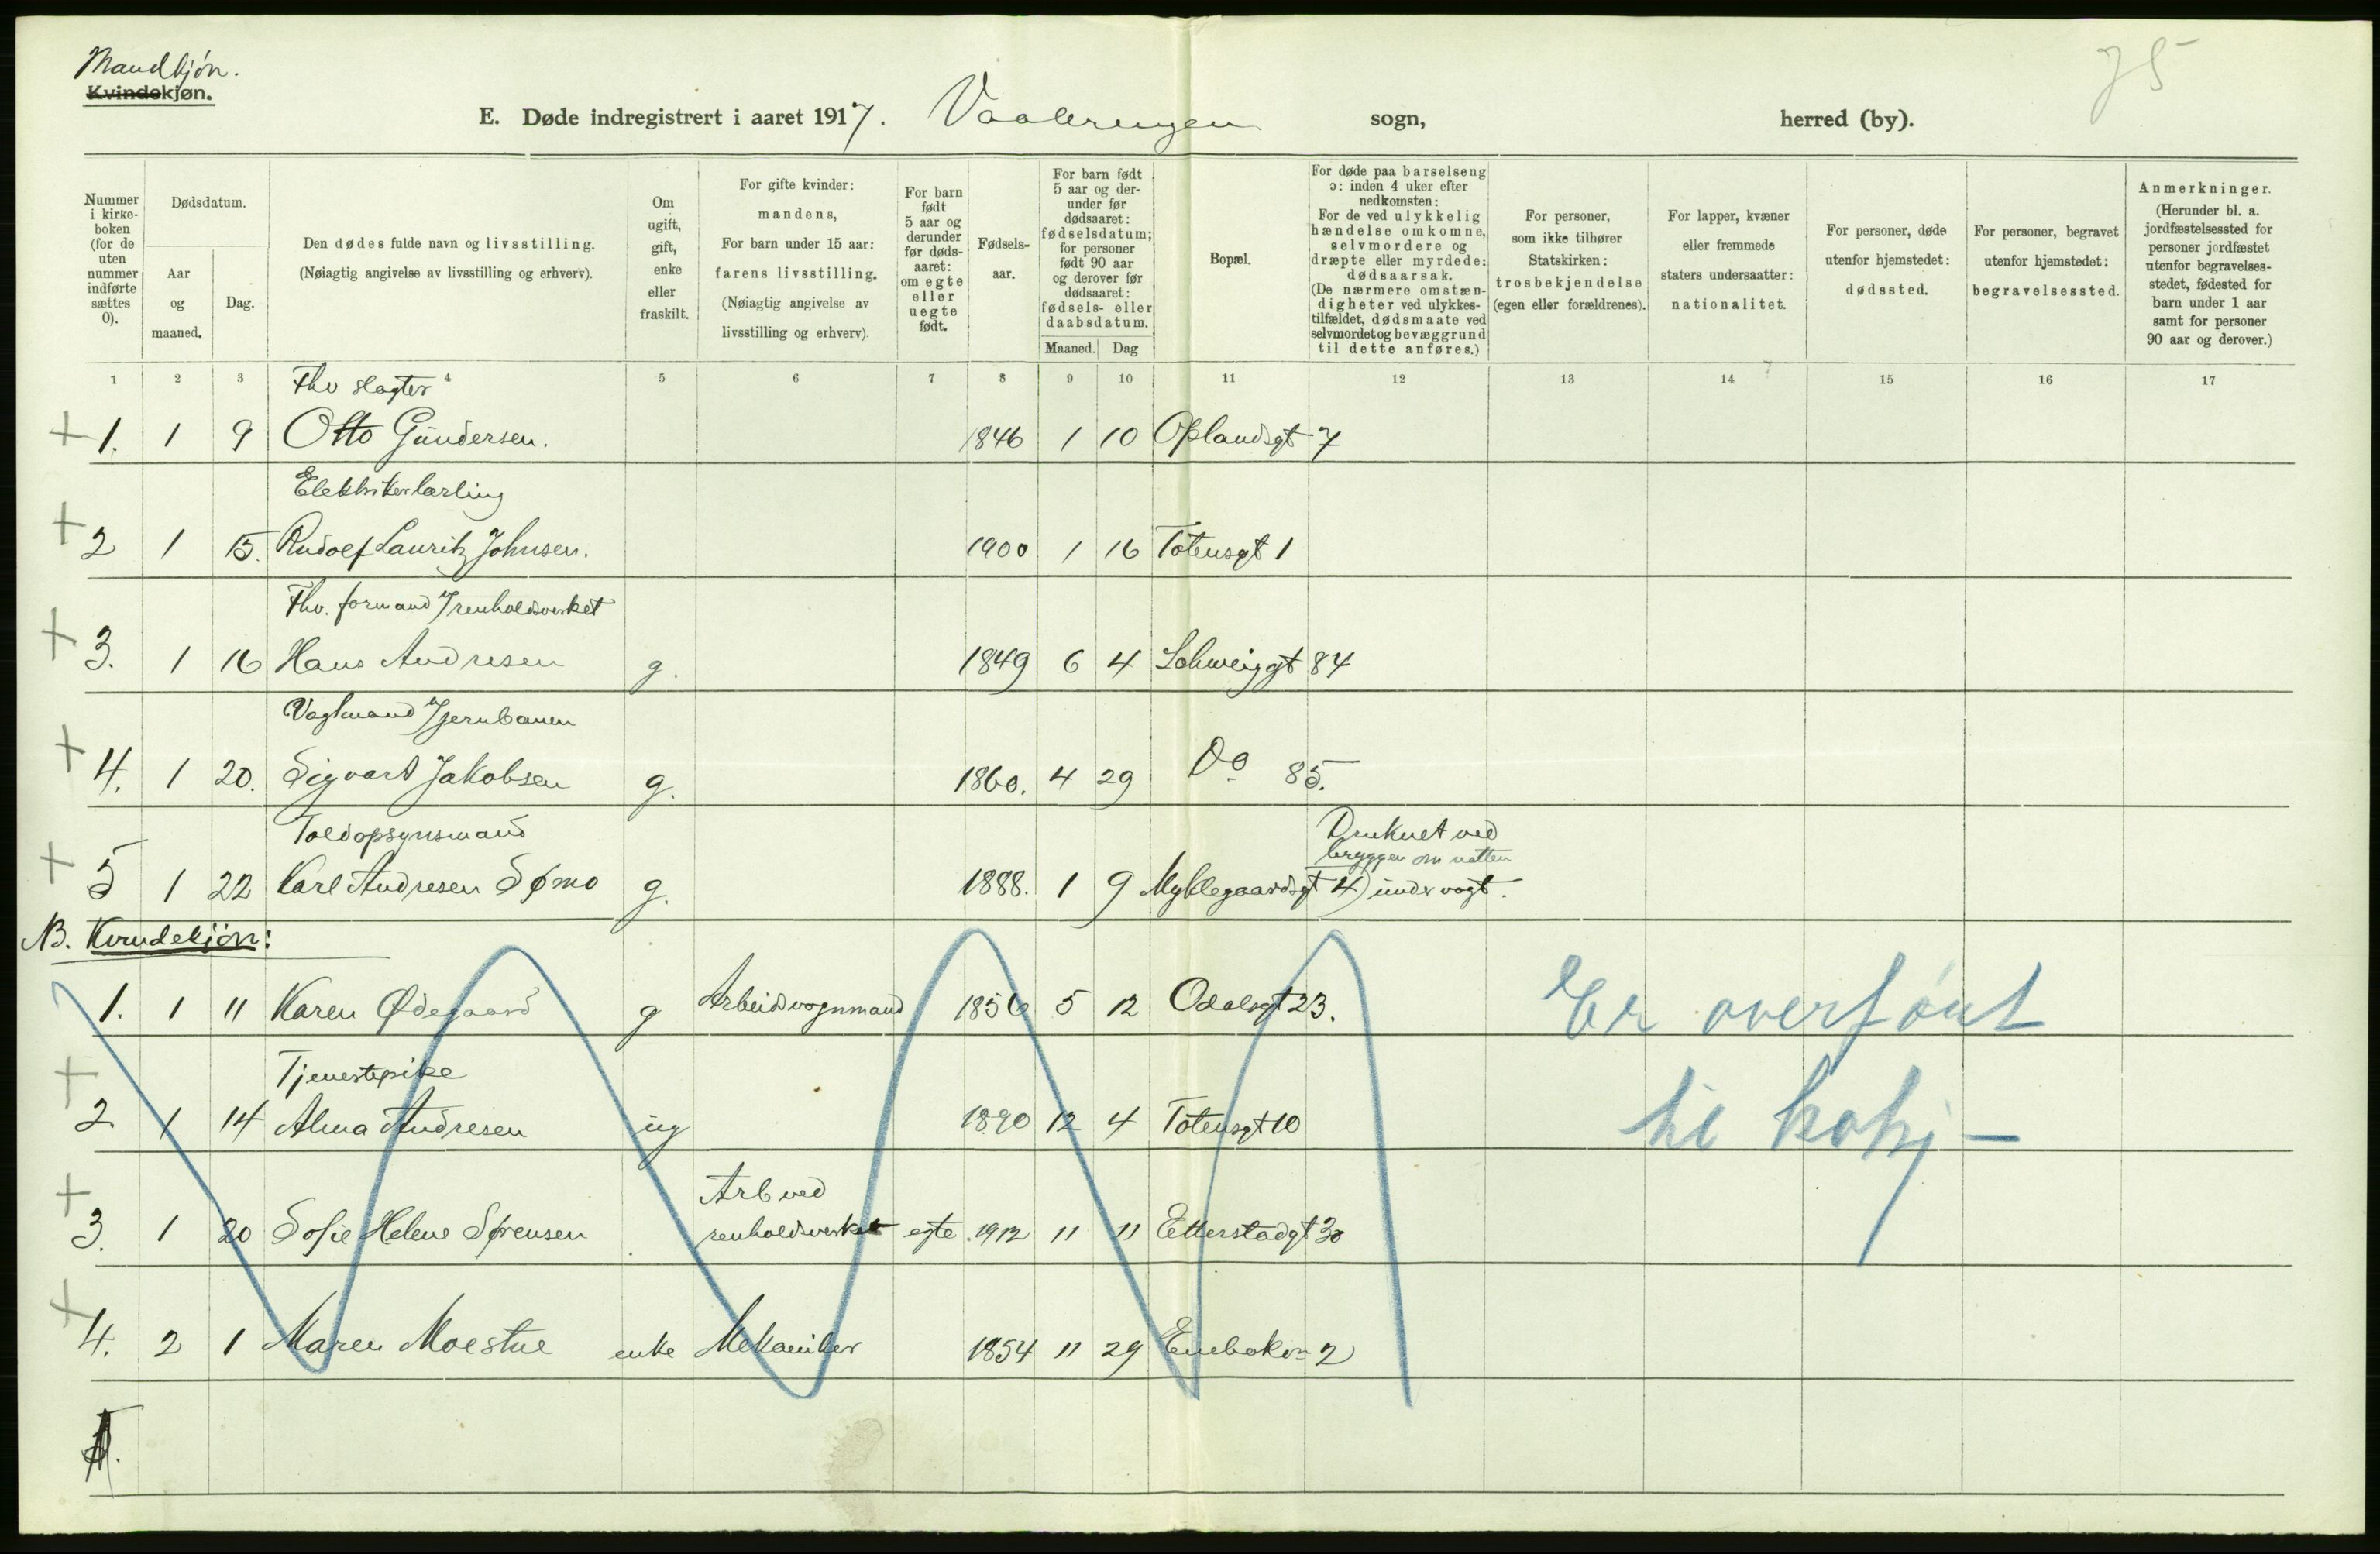 Mandkjøn.
Kvindekjøn.
75
E. Døde indregistrert i aaret 1917. Vaalerengen sogn, herred (by).
Nummer i kirkeboken (for de uten nummer indførte sættes 0).
Dødsdatum.
Aar og maaned.
Dag.
Den dødes fulde navn og livsstilling. (Nøiagtig angivelse av livsstilling og erhverv).
Om ugift, gift, enke eller fraskilt.
For gifte kvinder: mandens, For barn under 15 aar: farens livsstilling. (Nøiagtig angivelse av livsstilling og erhverv)
For barn født 5 aar og derunder før dødsaaret: om egte eller uegte født.
Fødselsaar.
For barn født 5 aar og derunder før dødsaaret: fødselsdatum; for personer født 90 aar og derover før dødsaaret: fødsels- eller daabsdatum.
Maaned. Dag
Bopæl.
For døde paa barselseng ɔ: inden 4 uker efter nedkomsten: For de ved ulykkelig hændelse omkomne, selvmordere og dræpte eller myrdede: dødsaarsak. (De nærmere omstændigheter ved ulykkestilfældet, dødsmaate ved selvmordet og bevæggrund til dette anføres.)
For personer, som ikke tilhører Statskirken: trosbekjendelse (egen eller forældrenes).
For lapper, kvæner eller fremmede staters undersaatter: nationalitet.
For personer, døde utenfor hjemstedet: dødssted.
For personer, begravet utenfor hjemstedet: begravelsessted.
Anmerkninger. (Herunder bl. a. jordfæstelsessted for personer jordfæstet utenfor begravelsesstedet, fødested for barn under 1 aar samt for personer 90 aar og derover.)
1 2 3 4 5 6 7 8 9 10 11 12 13 14 15 16 17
Fhv slagter
+ 1. 1 9 Otto Gundersen. 1846 1 10 Oplandsgt 7
Elektrikerlærling
+ 2 1 15. Rudolf Lauritz Johnsen. 1900 1 16 Totensgt 1
Fhv. formand v/renholdsverket
+ 3. 1 16 Hans Andresen g. 1849 6 4 Schweiggt 84
Vagtmand v/jernbanen
+ 4. 1 20. Sigvart Jakobsen g. 1860. 4 29 Do 85.
Toldopsynsmand Druknet ved
bryggen om natten
+ 5 1 22 Karl Andresen Sømo g. 1888. 1 9 Myklegaardsgt 4) under vagt.
NB. Kvindekjøn:
1. 1 11 Karen Ødegaard g Arbeidsvognmand 1856 5 12 Odalsgt 23.
Er overført
Tjenestepike
+ 2 1 14 Alma Andresen ug 1890 12 4 Totensgt 10
Arb ved
+ 3. 1 20 Sofie Helene Sørensen renholdsverket egte 1912 11 11 Etterstadgt 30
+ 4. 2 1 Maren Moestue enke Mekaniker 1854 11 29 2